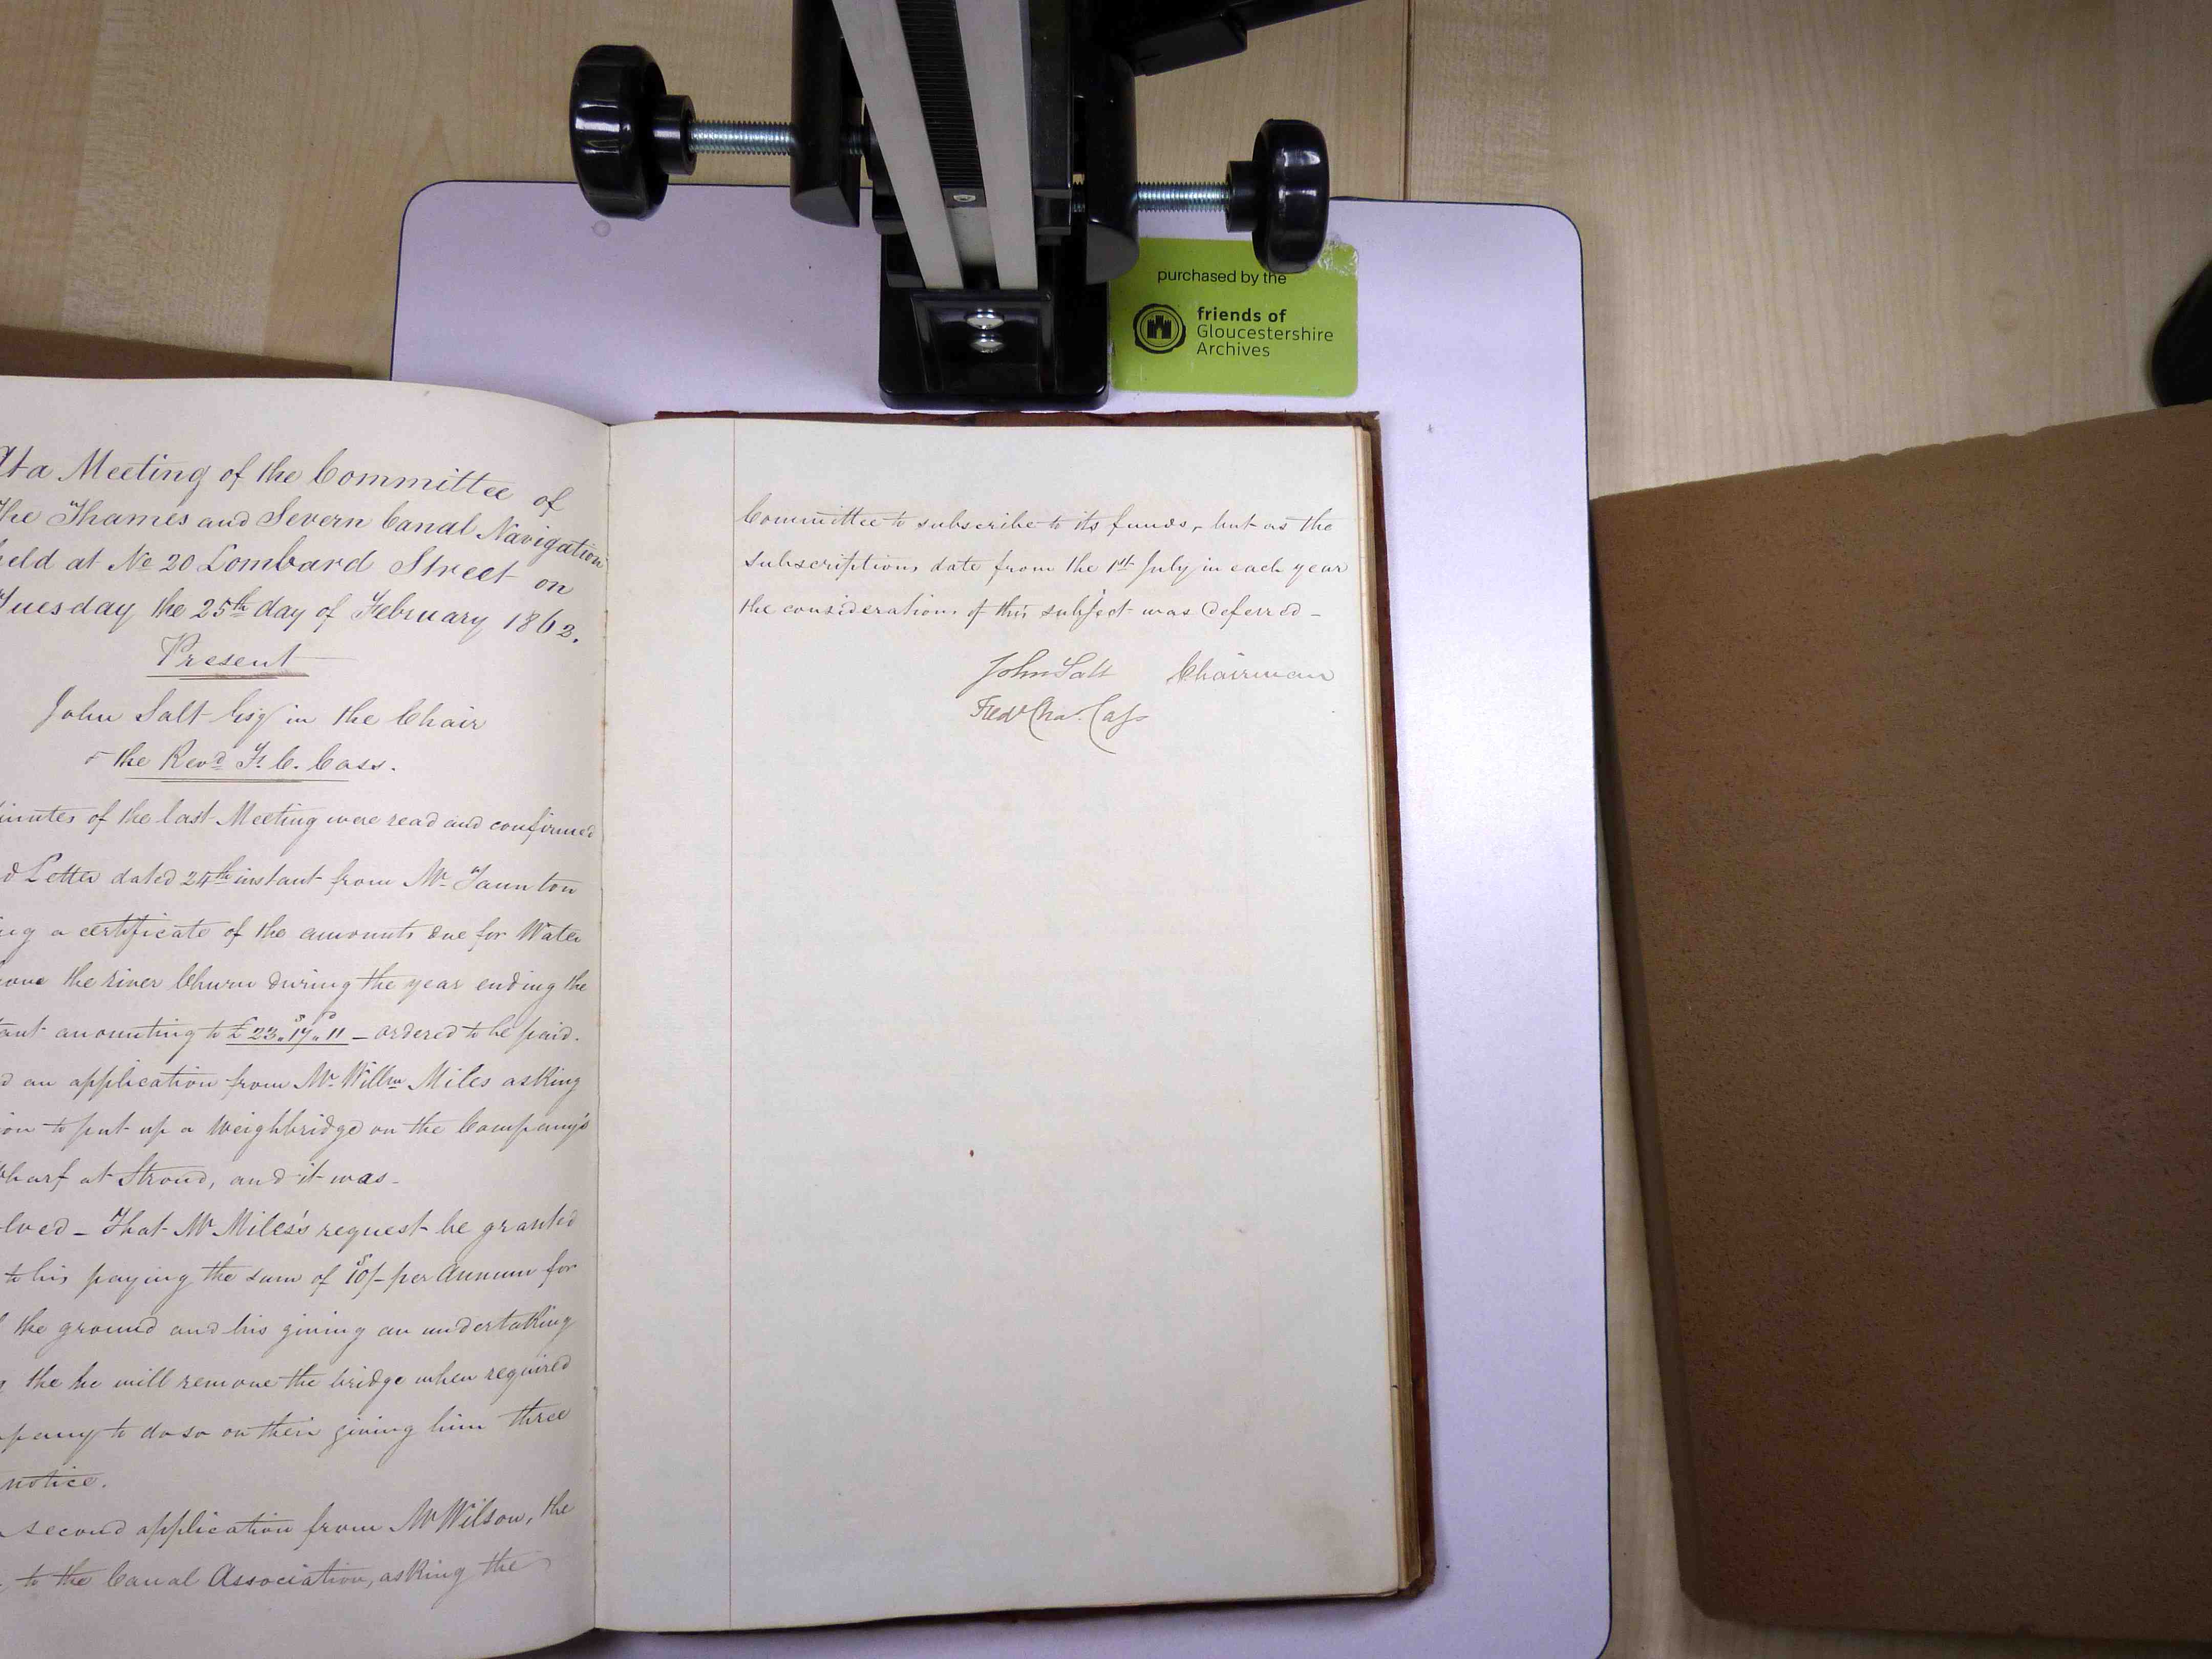 At a Meeting of the Committee of
the Thames and Severn Canal Navigation
held at No 20 Lombard Street on
Tuesday the 25th day of February 1862.
Present
John Salt Esqr in the Chair
& the Revd F. C. Cass.
minutes of the last Meeting were read and confirmed
d Letter dated 24th instant from Mr Taunton
ing a certificate of the amounts due for Water
the river Churn during the year ending the
amounting to £23.. 17.. 11 – ordered to be paid.
an application from Mr Willm Miles asking
ion to put up a weighbridge on the Company's
Wharf at Stroud, and it was –
lved – That Mr Miles's request be granted
to his paying the sum of 10/- per Annum for
the ground and his giving an undertaking
the he will remove the bridge when required
pany to do so on their giving him three
notice.
second application from Mr Wilson, the
to the Canal Association, asking the
Committee to subscribe to its funds, but as the
subscriptions date from the 1st July in each year
the consideration of this subject was deferred –
John Salt Chairman
Fredk Chas. Cass
purchased by the
friends of
Gloucestershire
Archives